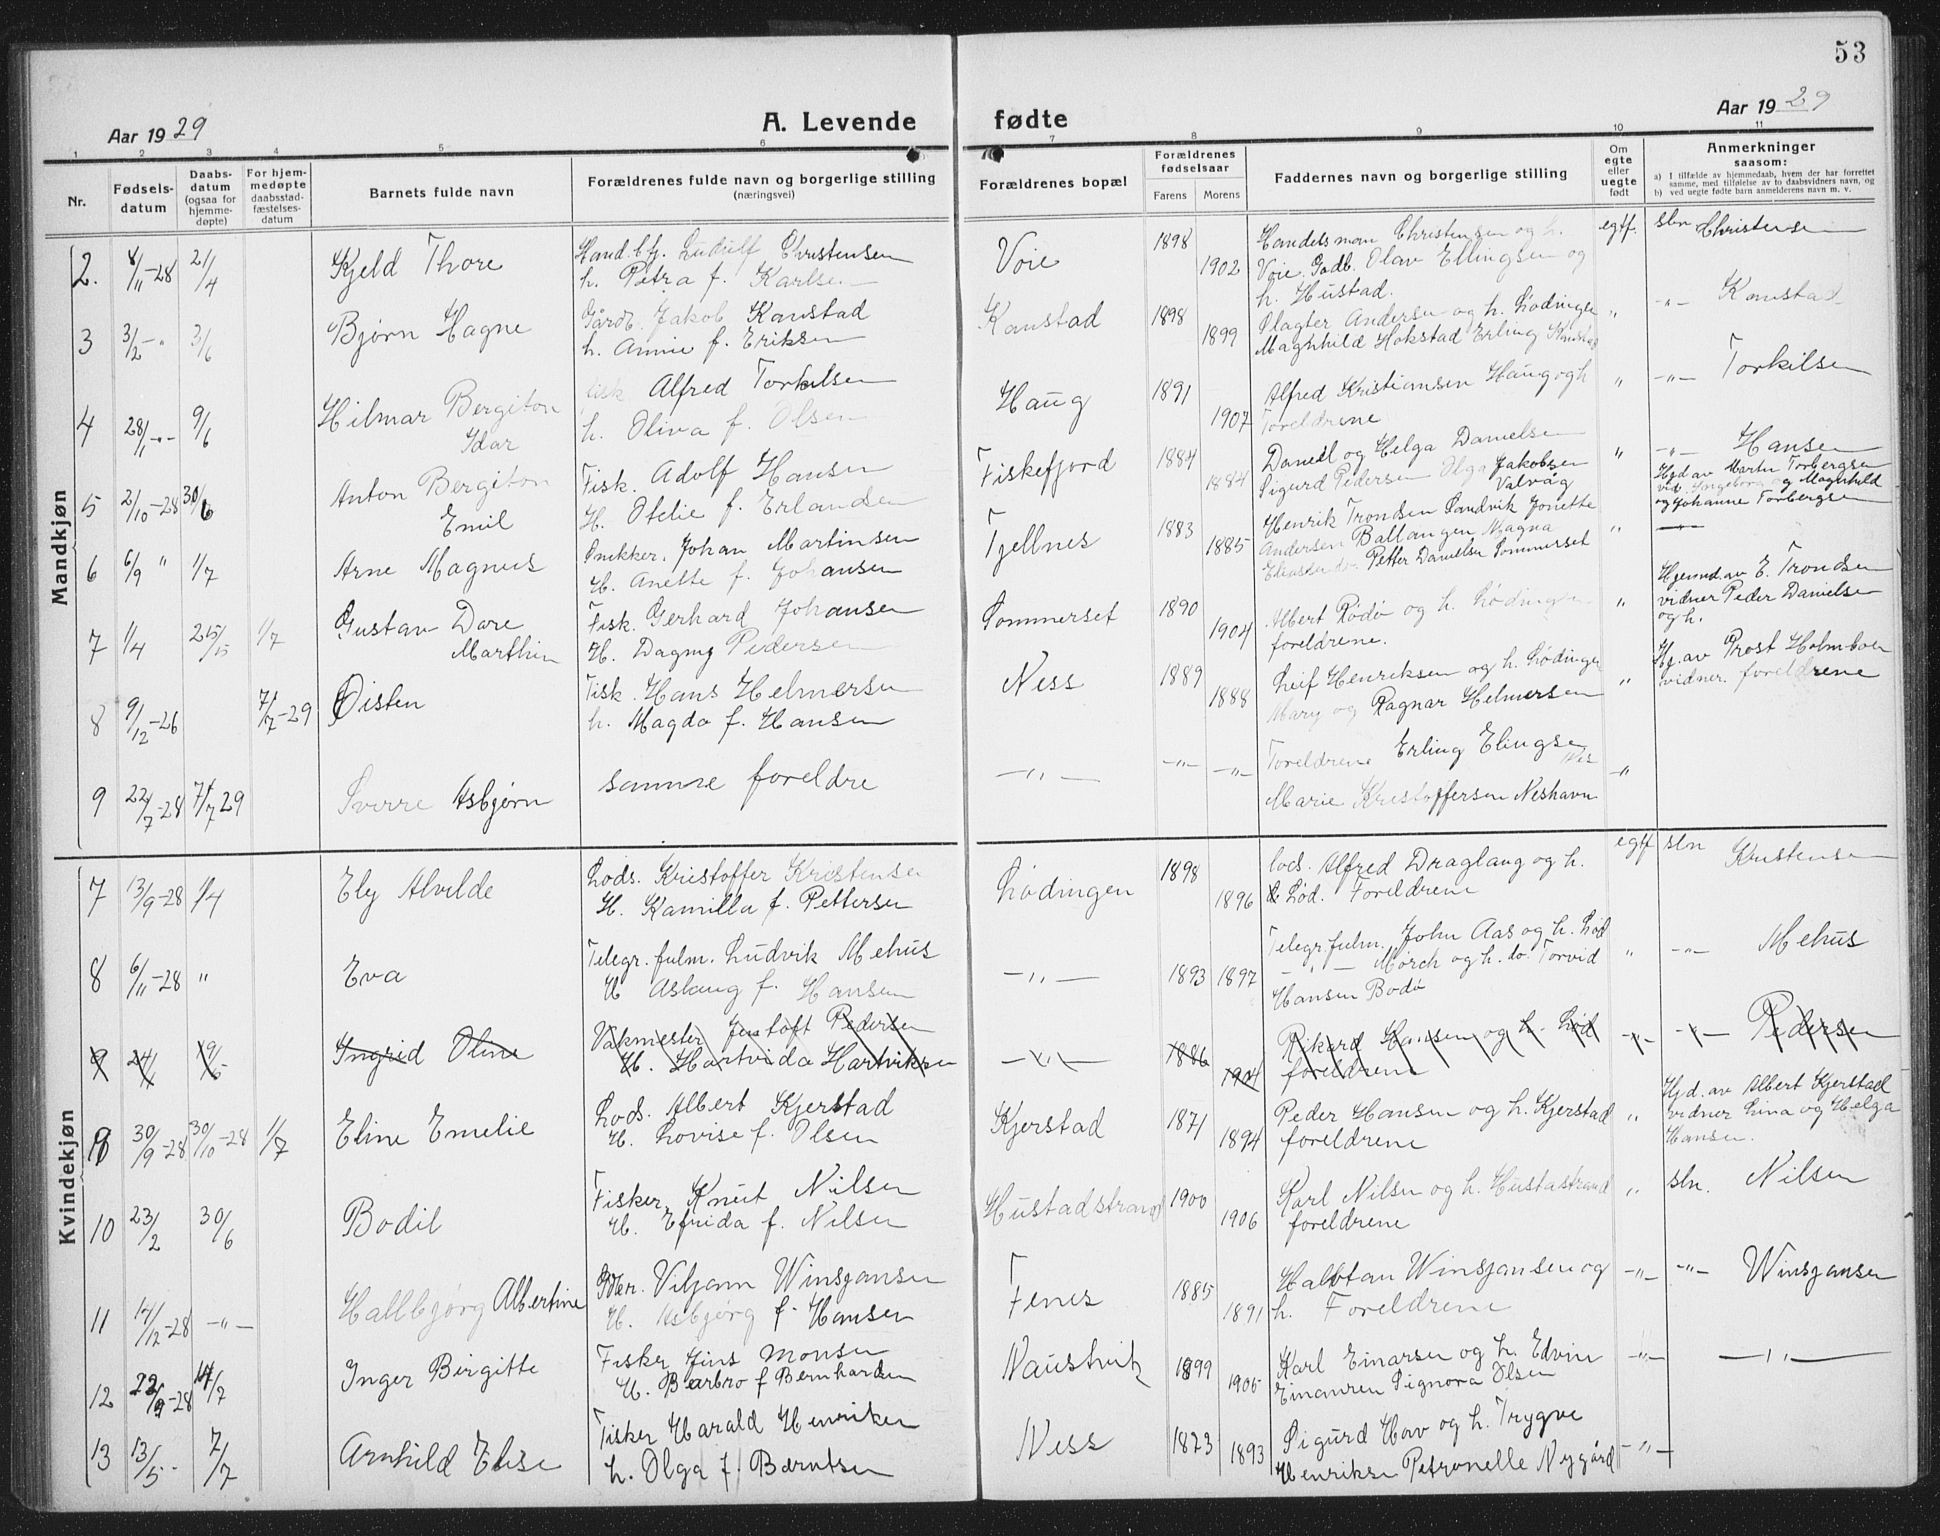 53
Aar 1929
A. Levende fødte
Aar 1929
1 2 3 4 5 6 7 8 9 10 11
Nr.
Fødsels-datum
Daabs-datum (ogsaa for hjemme-døpte)
For hjem-medøpte daabsstad-fæstelses-datum
Barnets fulde navn
Forældrenes fulde navn og borgerlige stilling (næringsvei)
Forældrenes bopæl
Forældrenes fødselsaar
Farens Morens
Faddernes navn og borgerlige stilling
Om egte eller uegte født
Anmerkninger saasom:
a) I tilfælde av hjemmedaab, hvem der har forrettet samme, med tilføielse av to daabsvidners navn, og
b) ved uegte fødte barn anmelderens navn m. v.
Mandkjøn
2. 8/11-28 21/4 Kjeld Thore
Hand.btj. Ludolf Christensen
h. Petra f. Karlsen
Voie 1898 1902
Handelsman Christensen og h.
Voie. Godb. Olav Ellingsen og
h. Hustad.
egtf. sln Christensen
3 3/2-" 3/6 Bjørn Hagne
Gårdb. Jakob Kanstad
h. Annie f. Eriksen
Kanstad 1898 1899
Slagter Andersen og h. Lødingen
Maghhild Hokstad Erling Kanstad
" -"- Kanstad
4 28/1-"- 9/6 Hilmar Bergiton
Idar
Fisk Alfred Torkilsen
h. Oliva f. Olsen
Haug 1891 1907
Alfred Kristiansen Haug og h
Foreldrene
" -"- Torkilsen
5 2/10-28 30/6 Anton Bergiton
Emil
Fisk. Adolf Hansen
H. Otelie f. Erlanden
Fiskefjord 1884 1884
Daniel og Helga Danielsen
Sigurd Pedersen Olga Jakobsen
Valvåg
" -"- Hansen
6 6/9 " 1/7 Arne Magnus
Snikker. Johan Martinsen
H. Anette f. Johansen
Tjellnes 1883 1885
Henrik Trondsen Sandvik Jonette
Andersen Ballangen Magna
Petter Danielsen Sommerset
"
Hjd av Martin Torbergsen
vid. Ingeborg og Magnhild
og Johanne Torbergsen
-"-
7 1/4 1/7 Gustav Dare
Marthin
Fisk. Gerhard Johansen
H. Dagny Pedersen
Sommerset 1890 1904
Albert Rødø og h. Lødingen
foreldrene.
"
Hjemd. av E. Trondsen
vidner Peder Danielsen
og h.
8 9/12-26 7/7-29 Øisten
Fisk. Hans Helmersen
h. Magda f. Hansen
Ness 1889 1888
Leif Henriksen og h. Lødingen
Mary og Ragnar Helmersen
"
Hj. av Prost Holmboe
vidner. foreldrene
9 22/7-28 7/7 29 Sverre Asbjørn
samme foreldre
-"- -"- -"-
Foreldrene Erling Elingsen
Nes
Marie Kristoffersen Neshavn
-"
Kvindekjøn
7 13/9-28 1/4 Ely Alvilde
Lods. Kristoffer Kristensen
H. Kamilla f. Pettersen
Lødingen 1898 1896
lods. Alfred Draglang og h.
Lød. Foreldrene
egtf sln Kristensen
8 6/11-28 " Eva
Telegr.fulm. Ludvik Mehus
H Aslaug f. Hansen
-"- 1893 1897
Telegr.fulm. John Aas og h. Lød
-"- Mörch og h. do. Torvid
Hansen Bodø
" -"- Mehus
9 24/1 19/5 Ingrid Oline
Vakmester Jentoft Pedersen
H. Hartvida Hartviksen
-"- 1886 1904
Rikard Hansen og h. Lød
foreldrene
-"- -"- Pedersen
9 30/9-28 30/10-28 1/7 Eline Emelie
Lods. Albert Kjerstad
H. Lovise f. Olsen
Kjerstad 1871 1894
Peder Hansen og h. Kjerstad
foreldrene
"
Hjd. av Albert Kjerstad
vidner Lina og Helga
Hansen.
10 23/2 30/6 Bodil
Fisker Knut Nilsen
H. Efrida f. Nilsen
Hustadstrand 1900 1906
Karl Nilsen og h. Hustastrand
foreldrene
" sln. Nilsen
11 14/12-28 -"- Hallbjørg Albertine
Viljam Winsjansen
H. Asbjørg f. Hansen
Fenes 1885 1891
Halvtan Winsjansen og
h. Foreldrene
-"- -"- Winsjansen
12 22/9-28 14/7 Inger Birgitte
Fisker Jens Monsen
H. Barbro f Bernhardsen
Naustvik 1899 1905
Karl Einarsen og h. Edvin
Einansen Signora Olsen
-"- -"-
13 13/5 -- 7/7 Arnhild Elise
Fisker Harald Henriksen
h. Olga f. Berntsen
Ness 1893
Sigurd Hov og h. Trygve
Henriksen Petronelle Nygård
-"-